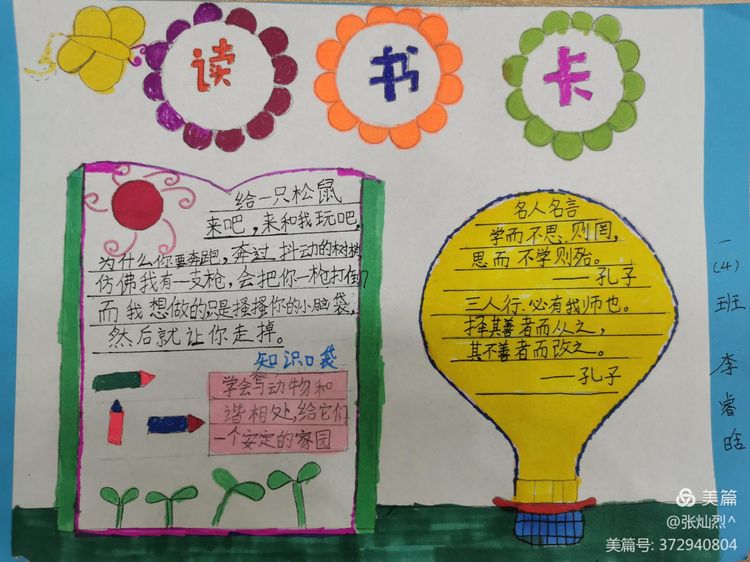 读书卡
给一只松鼠
来吧,来和我玩吧,
为什么你要奔跑,奔过抖动的树梢
仿佛我有一支枪,会把你一枪打倒?
而我想做的只是搔搔你的小脑袋,
然后就让你走掉。
知识口袋
学会与动物和
谐相处,给它们
一个安定的家园
名人名言
学而不思,则罔,
思而不学则殆。
——孔子
三人行,必有我师也。
择其善者而从之,
其不善者而改之。
——孔子
一(4)班 李睿晗
美篇
@张灿烈^
美篇号: 372940804